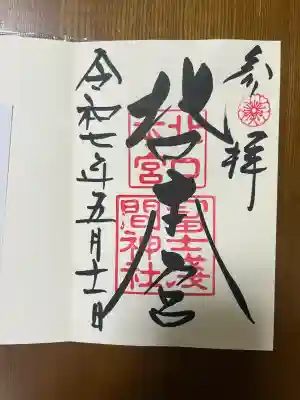 参拝
北口本宮
北口本宮
冨士淺間神社
令和七年五月十一日